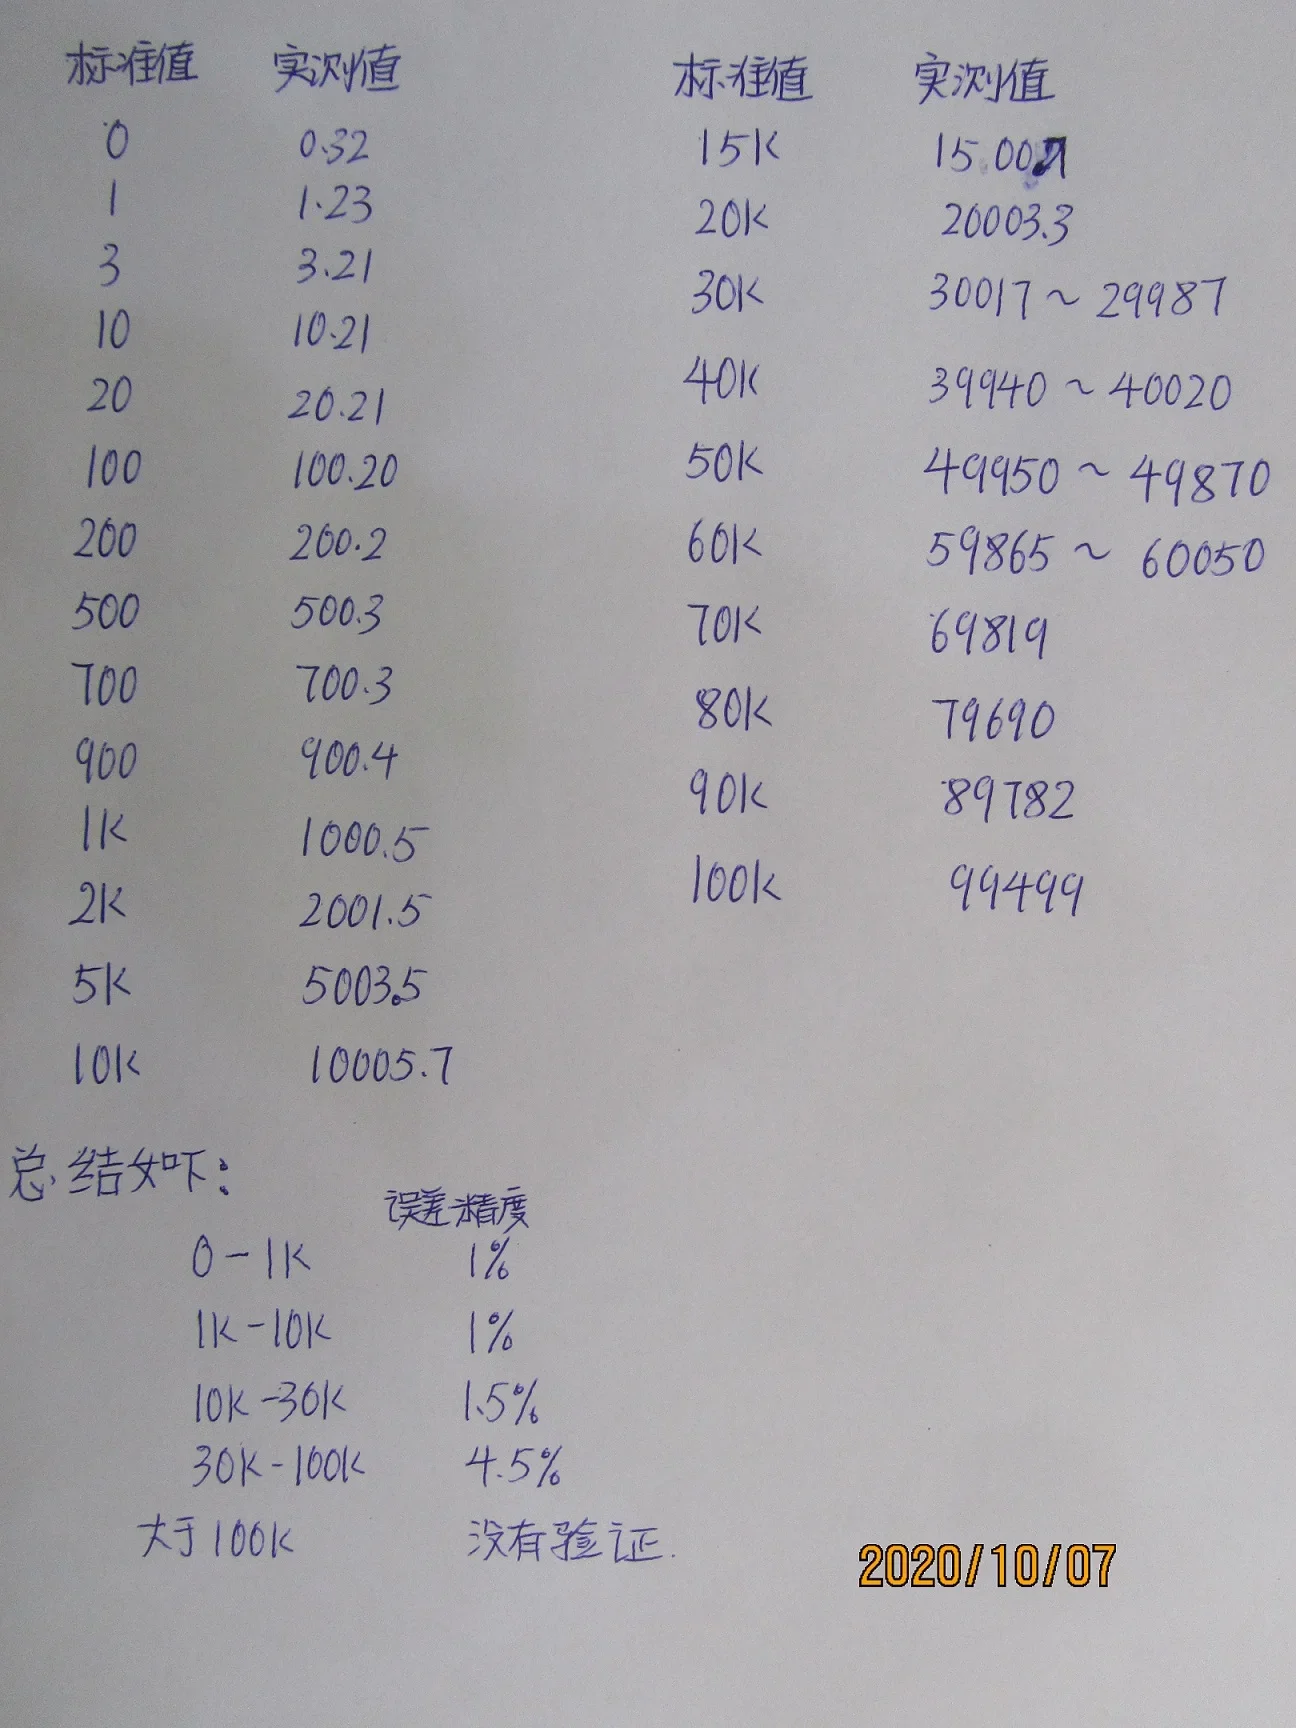 标准值 实测值
0 0.32
1 1.23
3 3.21
10 10.21
20 20.21
100 100.20
200 200.2
500 500.3
700 700.3
900 900.4
1K 1000.5
2K 2001.5
5K 5003.5
10K 10005.7
标准值 实测值
15K
20K 20003.3
30K 30017~29987
40K 39940~40020
50K 49950~49870
60K 59865~60050
70K 69819
80K 79690
90K 89782
100K 99499
总结如吓:
误差精度
0-1K 1%
1K-10K 1%
10K-30K 1.5%
30K-100K 4.5%
大于100K 没有验证.
2020/10/07